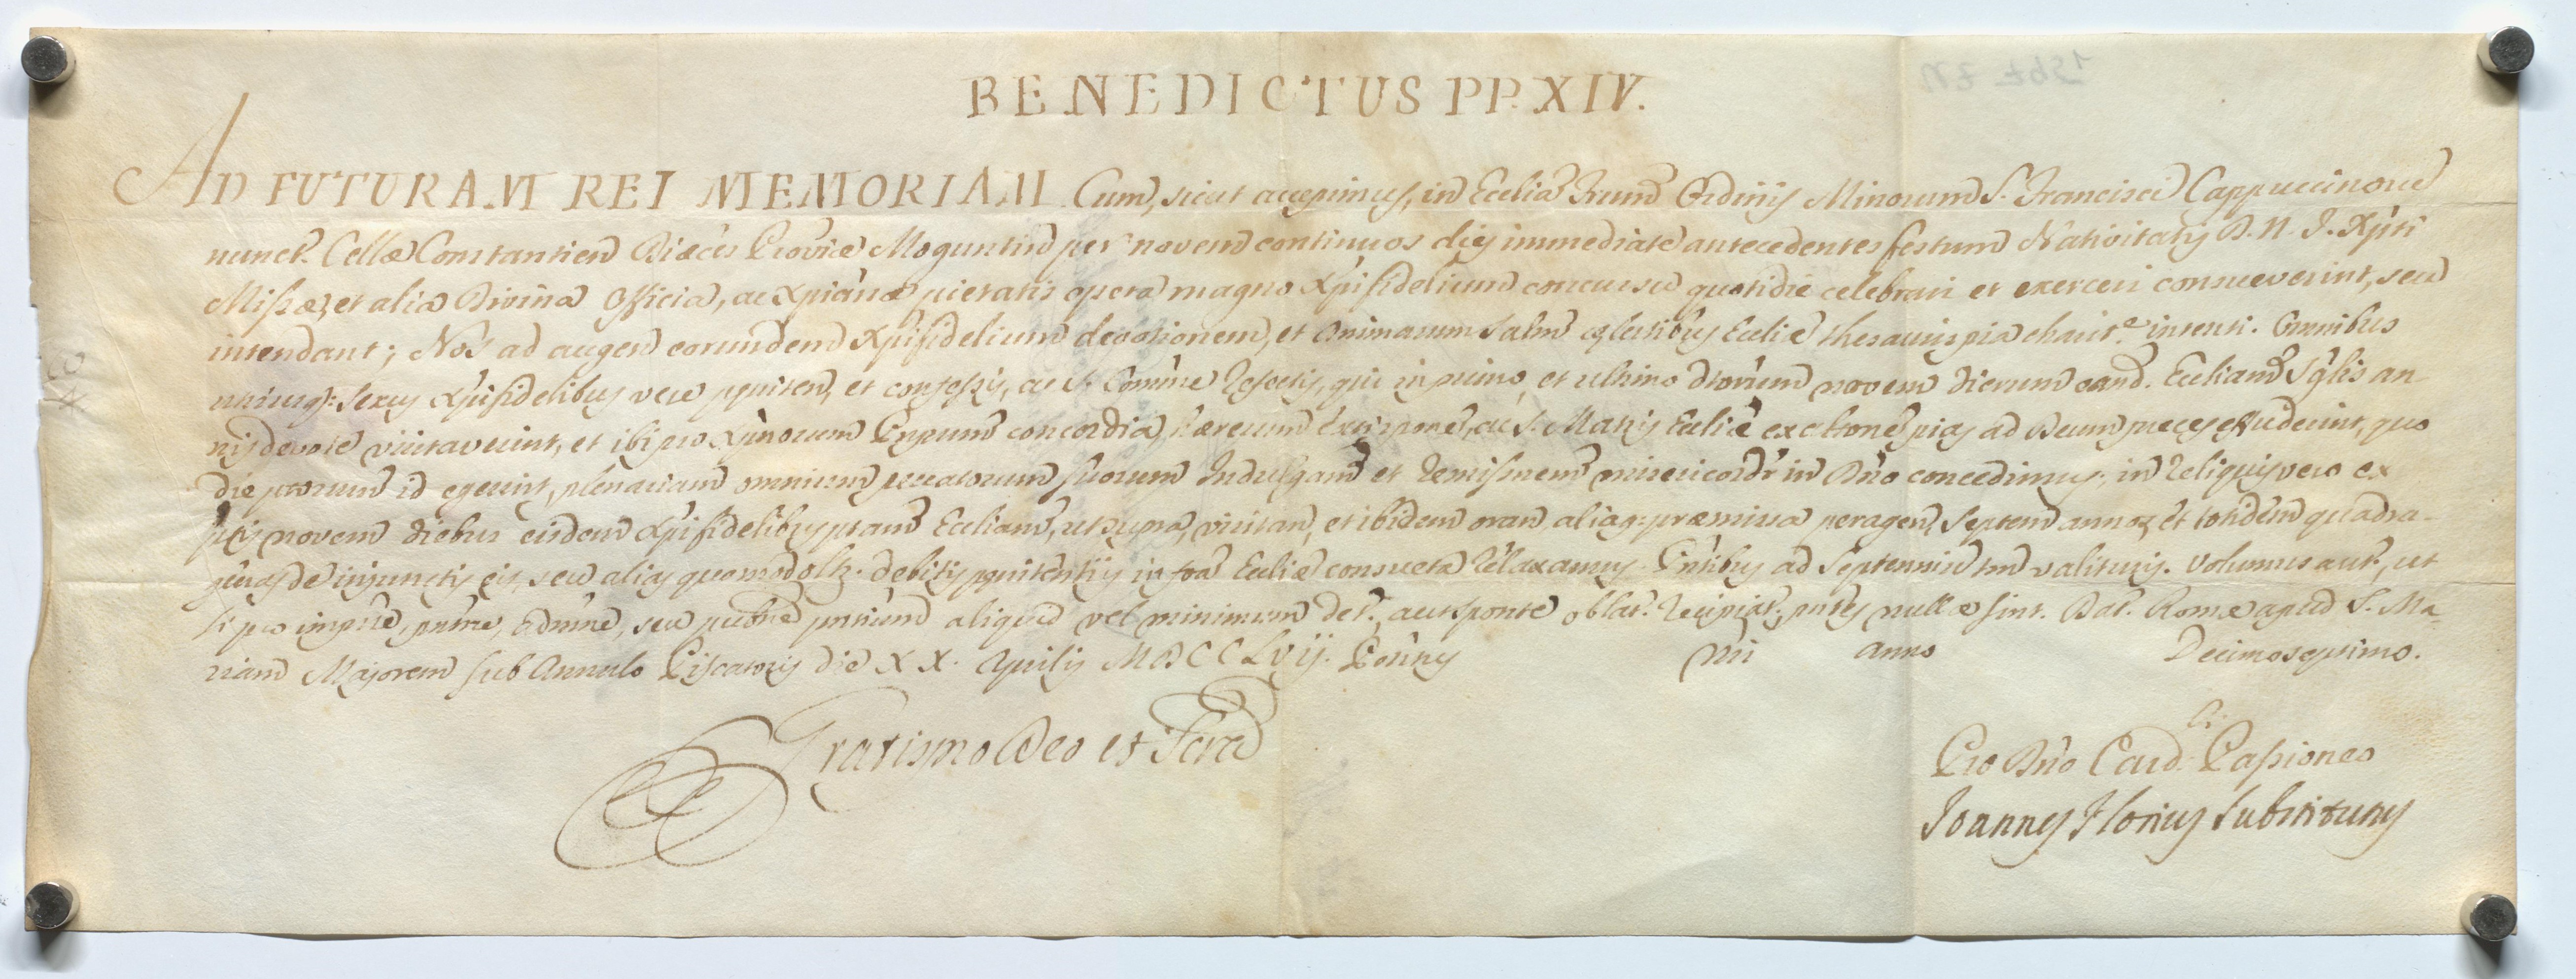 BENEDICTUS PP. XIV.
AD FUTURAM REI MEMORIAM Cum, sicut accepimus, in Ecclia Frum Ordinis Minorum S. Francisci Cappuccinoru
nunct. Cellæ Constantien Diæcis Proviæ Moguntin per novem continuos dies immediate antecedentes festum Nativitatis D. N. J. Xpti
Missæ, et alia Divina Officia, ac Xpianæ pietatis opera magno Xpifidelium concursu quotidie celebrari et exerceri consueverint, seu
intendant; Nos ad augen eorundem Xpifidelium devotionem, et animarum salm cælestibus Ecclie thesauris pia charit.e intenti. Omnibus
utriusq: sexus Xpifidelibus vere pniten, et confessis, ac S. Comune refectis, qui in primo, et ultimo dtorum novem dierum eand. Eccliam Sglis an
nis devote visitaverint, et ibi pro Xpnorum Prpum concordia, hæresum extirpone, ac S. Matris Ecclie exaltione pias ad Deum preces effuderint, quo
die ptorum id egerint, plenariam omnium peccatorum suorum Indulgam et remissnem misericordr in Dno concedimus; in reliquis vero ex
ptis novem diebus eisdem Xpifidelibus ptam Eccliam, ut supra, visitan, et ibidem oran aliaq: præmissa peragen, septem annos, et totidem quadra-
genas de injunctis eis, seu alias quomodolt. debitis pnitentiis in foa Ecclie consueta relaxamus. Pntibus ad Septenniu tm valituris. Volumus aut., ut
si pro impne, pntne, admne, seu publne pntium aliquid vel minimum det. aut sponte oblat. recipiat, pntes nullæ sint. Dat. Romæ apud S. Ma-
riam Majorem sub Annulo Piscatoris die XX. Aprilis MDCCLVij. Pontus Nri Anno Decimoseptimo.
Gratis pro Deo et Scra
Pro Dno Card. Passioneo
Joannes Florius Substitutus